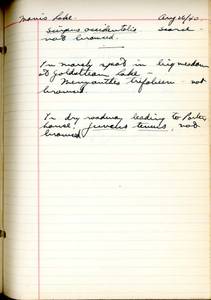 Mavis Lake. Aug 26/40
Scirpus occidentalis scarce -
not browsed.
In marshy spot in big meadow
at Goldstream Lake -
Menyanthes trifolium - not
browsed.
In dry roadway leading to Parker
house, Juncus tenuis, not
browsed